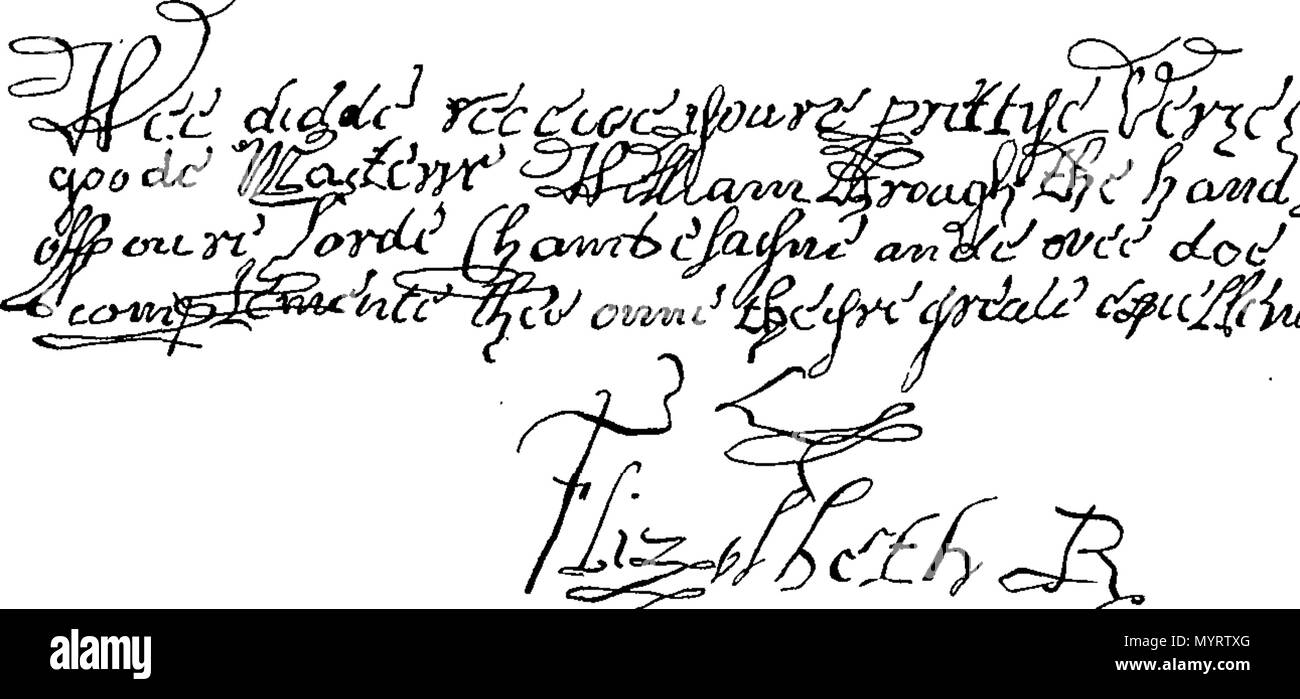 Wee didde receive youre prettye Verses
goode Masterre William through the hands
off oure Lorde Chamberlayne ande wee doe
complemente thee onne theyre greate excellence
Elizabeth R
alamy
Image ID: MYRTXG
www.alamy.com